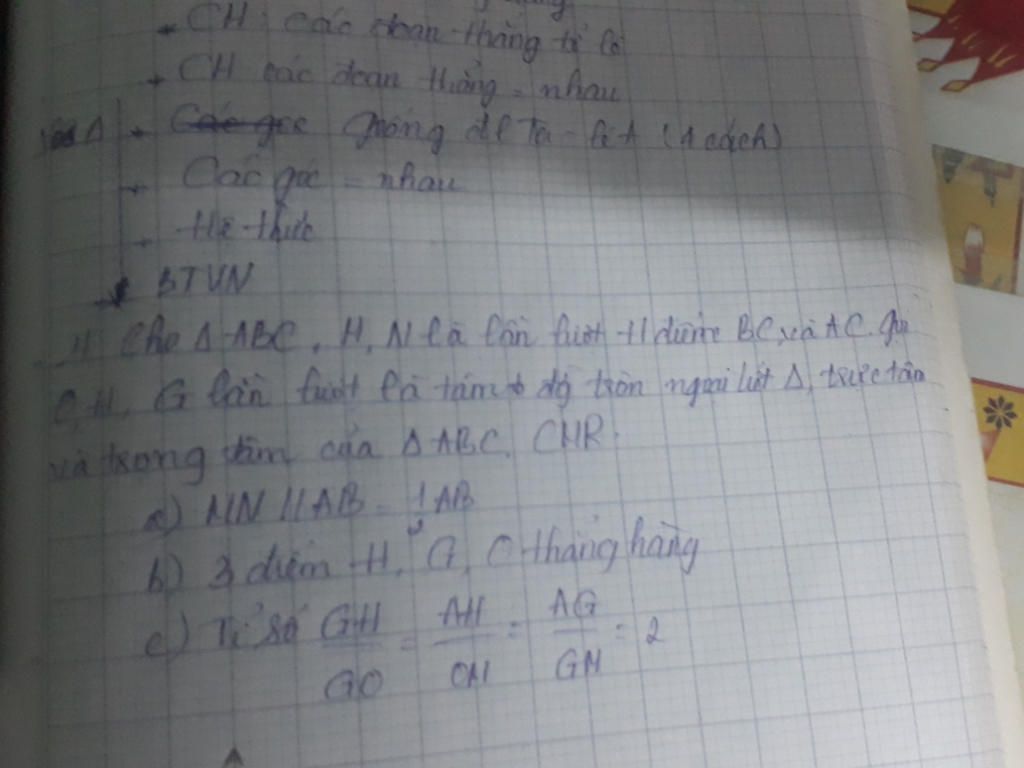 CH các đoạn thẳng tỉ lệ
+ CH các đoạn thẳng = nhau
+ Các góc Giống đl Ta-lét (1 cách)
+ Các góc = nhau
+ Hệ thức
BTVN
Cho Δ ABC, M, N là lần lượt tđiểm BC và AC. Gọi
O, H, G lần lượt là tâm độ tròn ngoại tiết Δ, trực tâm
và trọng tâm của Δ ABC. CMR:
a) MN // AB = 1/2 AB
b) 3 điểm H, G, O thẳng hàng
c) Tỉ số GH/GO = AH/OM = AG/GM = 2